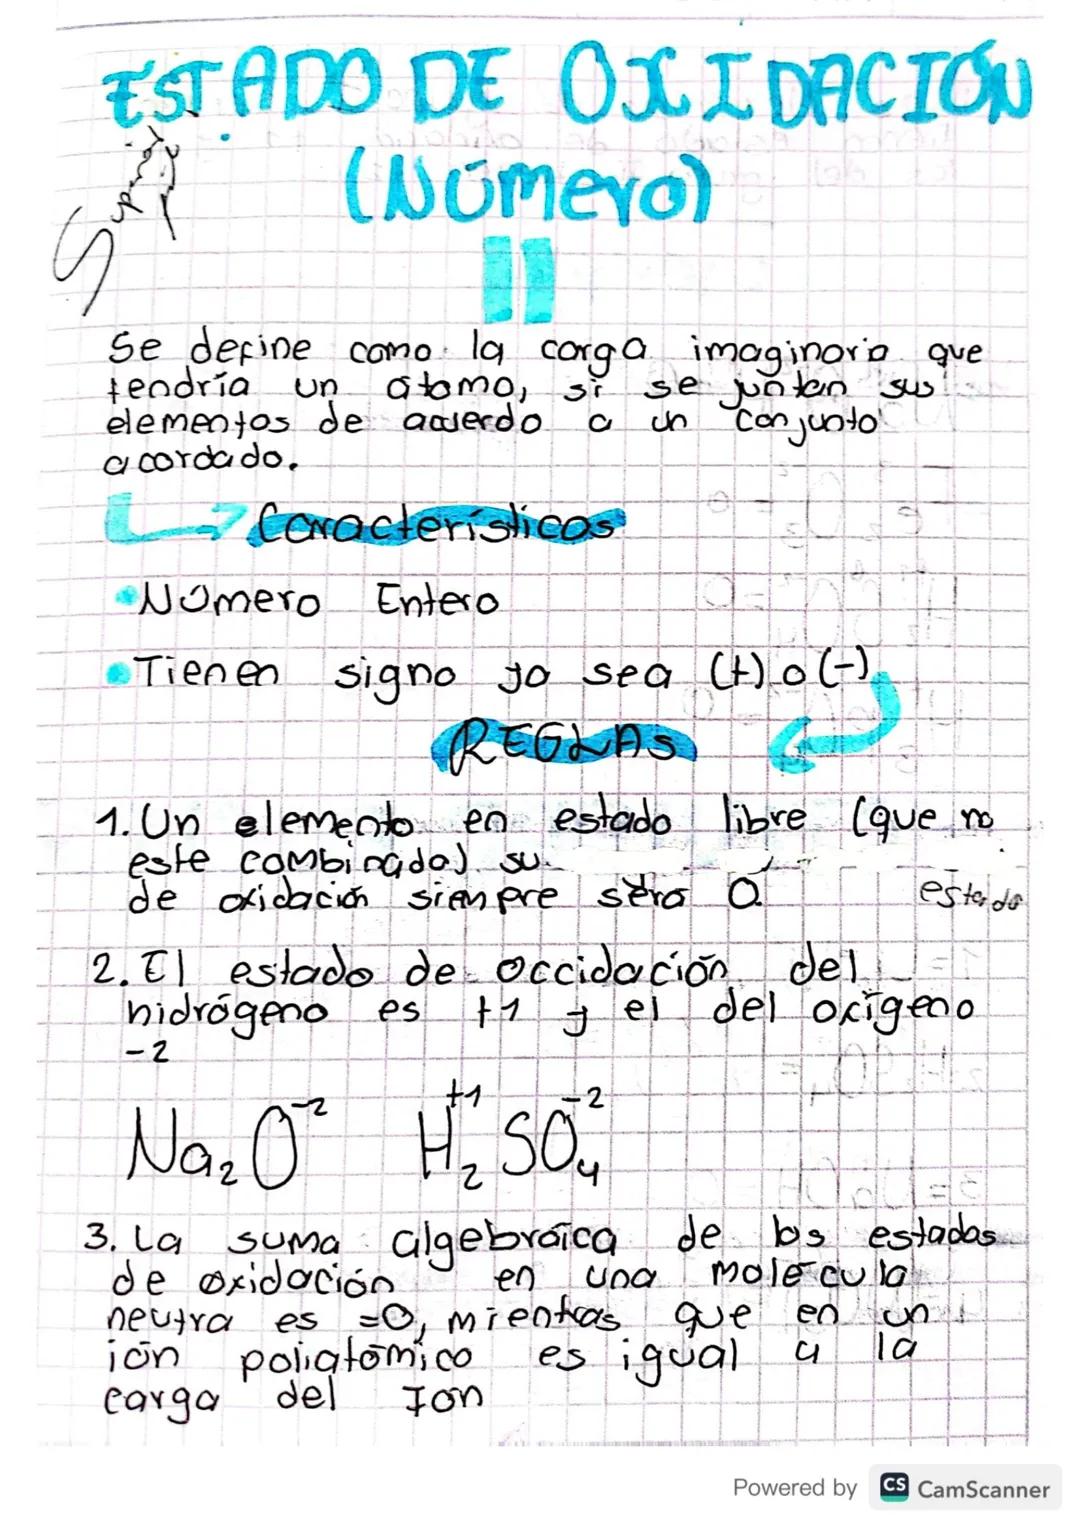 ESTADO DE OXIDACIÓN
(Número)
Se define como la carga imaginaria que
tendría un átomo, si se juntan sus
elementos de acuerdo a un conjunto
acordado.
Características
•Número Entero
•Tienen signo ya sea (+) o (-)
REGLAS
1. Un elemento en estado libre (que no
este combinado) su
de oxidación siempre será 0
estado
2. El estado de occidación del
hidrógeno es +1 y el del oxígeno
-2
Na₂O⁻² H₂⁺¹SO₄⁻²
3. La suma algebraíca de los estados
de oxidación en una molécula
neutra es =0, mientras que en un
ión poliatómico es igual a la
carga del Ion
Powered by CS CamScanner